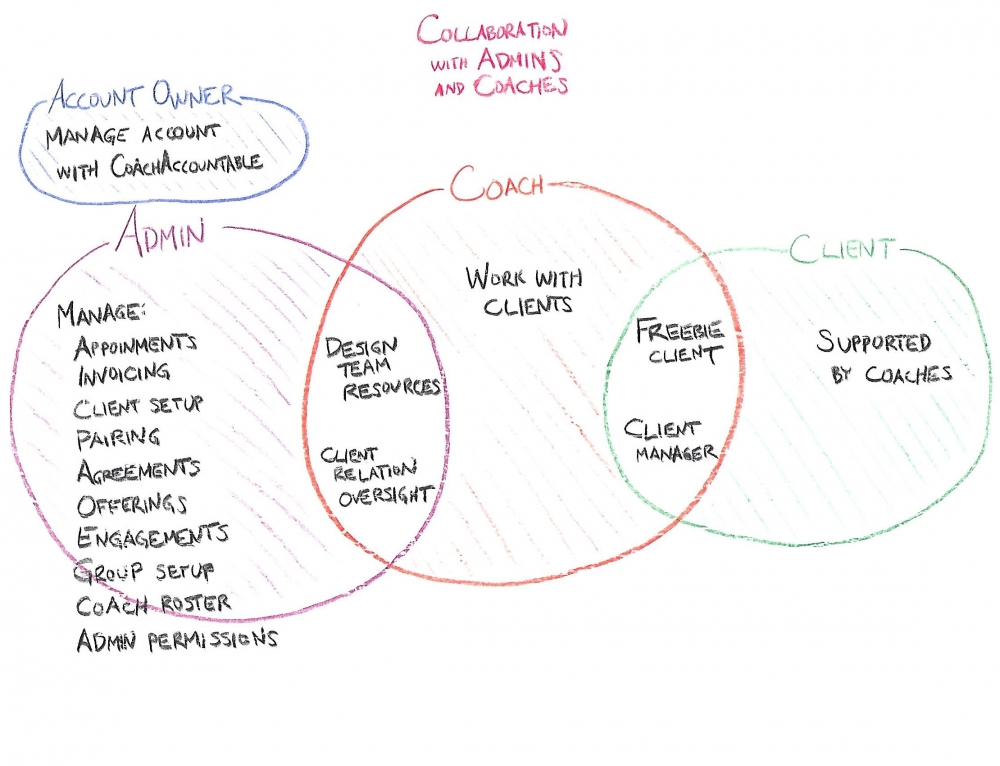 COLLABORATION
WITH ADMINS
AND COACHES
ACCOUNT OWNER
MANAGE ACCOUNT
WITH COACHACCOUNTABLE
ADMIN
MANAGE:
APPOINMENTS
INVOICING
CLIENT SETUP
PAIRING
AGREEMENTS
OFFERINGS
ENGAGEMENTS
GROUP SETUP
COACH ROSTER
ADMIN PERMISSIONS
DESIGN
TEAM
RESOURCES
CLIENT
RELATION
OVERSIGHT
COACH
WORK WITH
CLIENTS
FREEBIE
CLIENT
CLIENT
MANAGER
CLIENT
SUPPORTED
BY COACHES